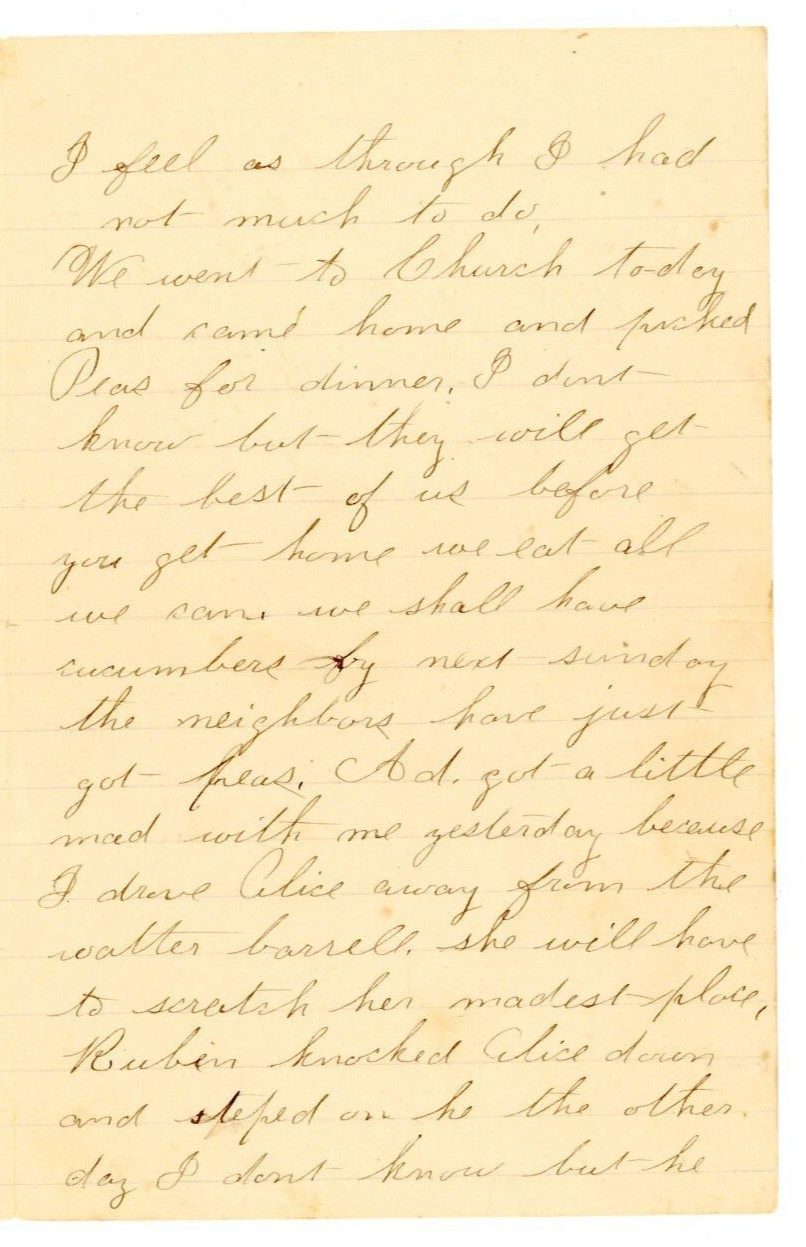 I feel as through I had
not much to do,
We went to Church to-day
and came home and picked
Peas for dinner. I dont
know but they will get
the best of us before
you get home we eat all
we can. we shall have
cucumbers by next sunday
the neighbors have just
got peas. Ad. got a little
mad with me yesterday because
I drove Alice away from the
watter barrell. she will have
to scratch her madest place,
Rubin knocked Alice down
and steped on he the other.
day I dont know but he